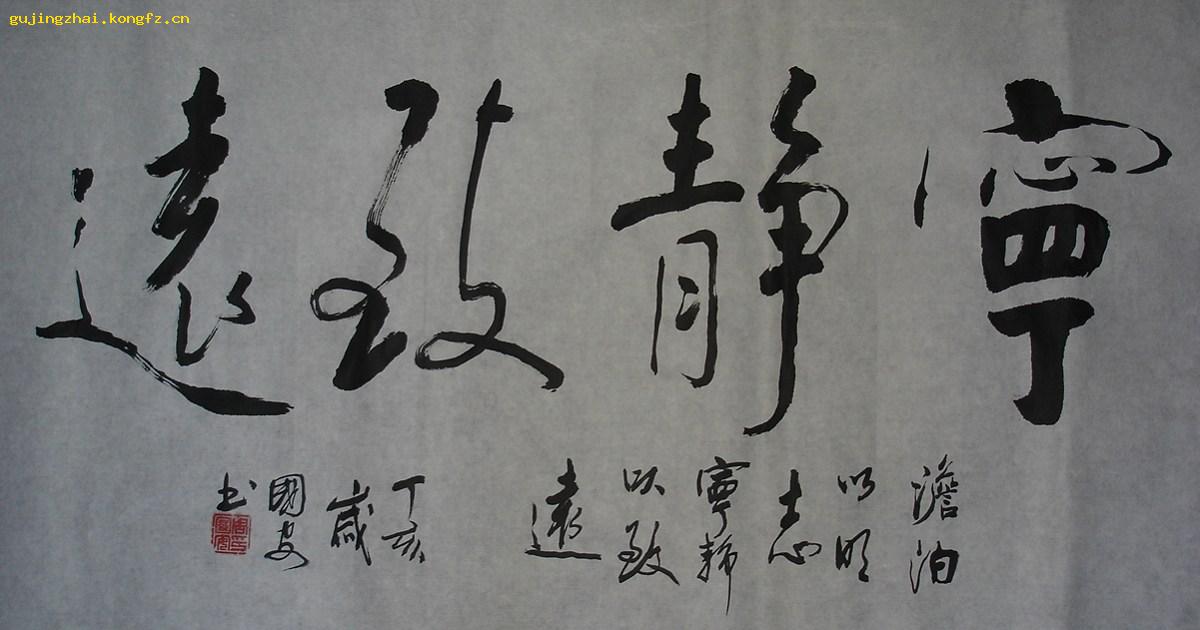 gujingzhai.kongfz.cn
寧靜致遠
澹泊
以明
志
寧静
以致
遠
丁亥
歲
國安
书